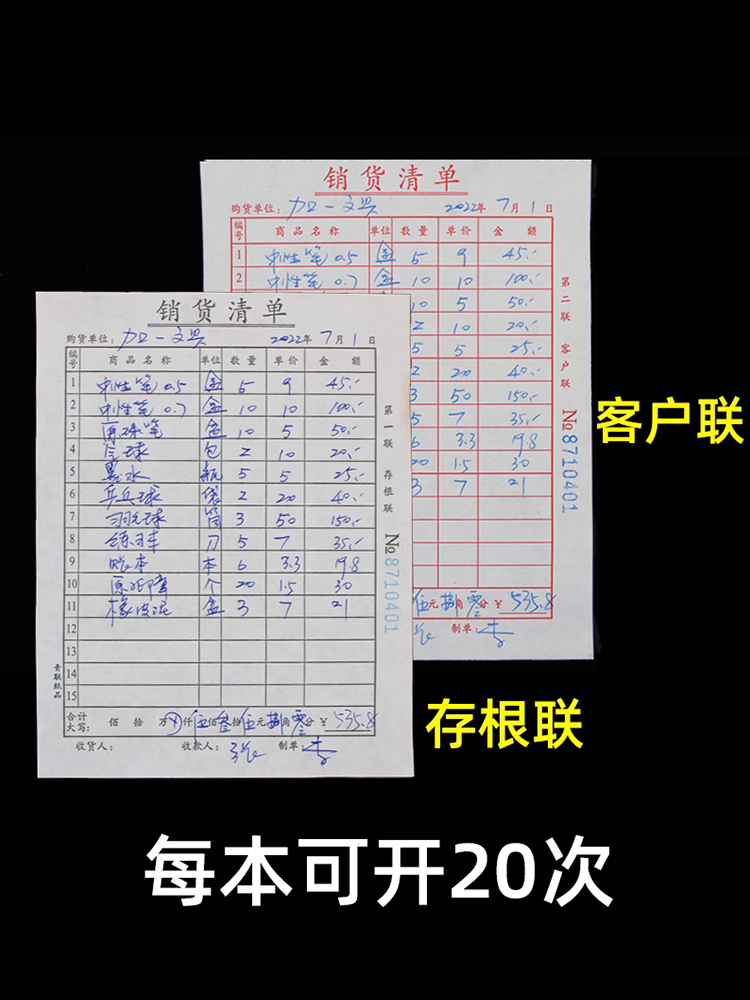 销货清单
购货单位: 加一文具 2022年 7月 1日
编号 商品名称 单位 数量 单价 金额
1 中性笔 0.5 盒 5 9 45.-
2 中性笔 0.7 盒 10 10 100.-
10 5 50.-
2 10 20.-
5 5 25.-
2 20 40.-
3 50 150.-
5 7 35.-
6 3.3 19.8
20 1.5 30
3 7 21
伍元捌角零分 ¥ 535.8
张 制单: 李
第二联 客户联
No 8710401
销货清单
购货单位: 加一文具 2022年 7月 1日
编号 商品名称 单位 数量 单价 金额
1 中性笔 0.5 盒 5 9 45.-
2 中性笔 0.7 盒 10 10 100.-
3 圆珠笔 盒 10 5 50.-
4 气球 包 2 10 20.-
5 墨水 瓶 5 5 25.-
6 乒乓球 袋 2 20 40.-
7 羽毛球 筒 3 50 150.-
8 刀 5 7 35.-
9 账本 本 6 3.3 19.8
10 个 20 1.5 30
11 橡皮泥 盒 3 7 21
12
13
14
15
合计大写: 佰 拾 万 仟 伍佰叁拾伍元捌角零分 ¥ 535.8
收货人: 收款人: 张 制单: 李
第一联 存根联
No 8710401
青联纸品
客户联
存根联
每本可开20次